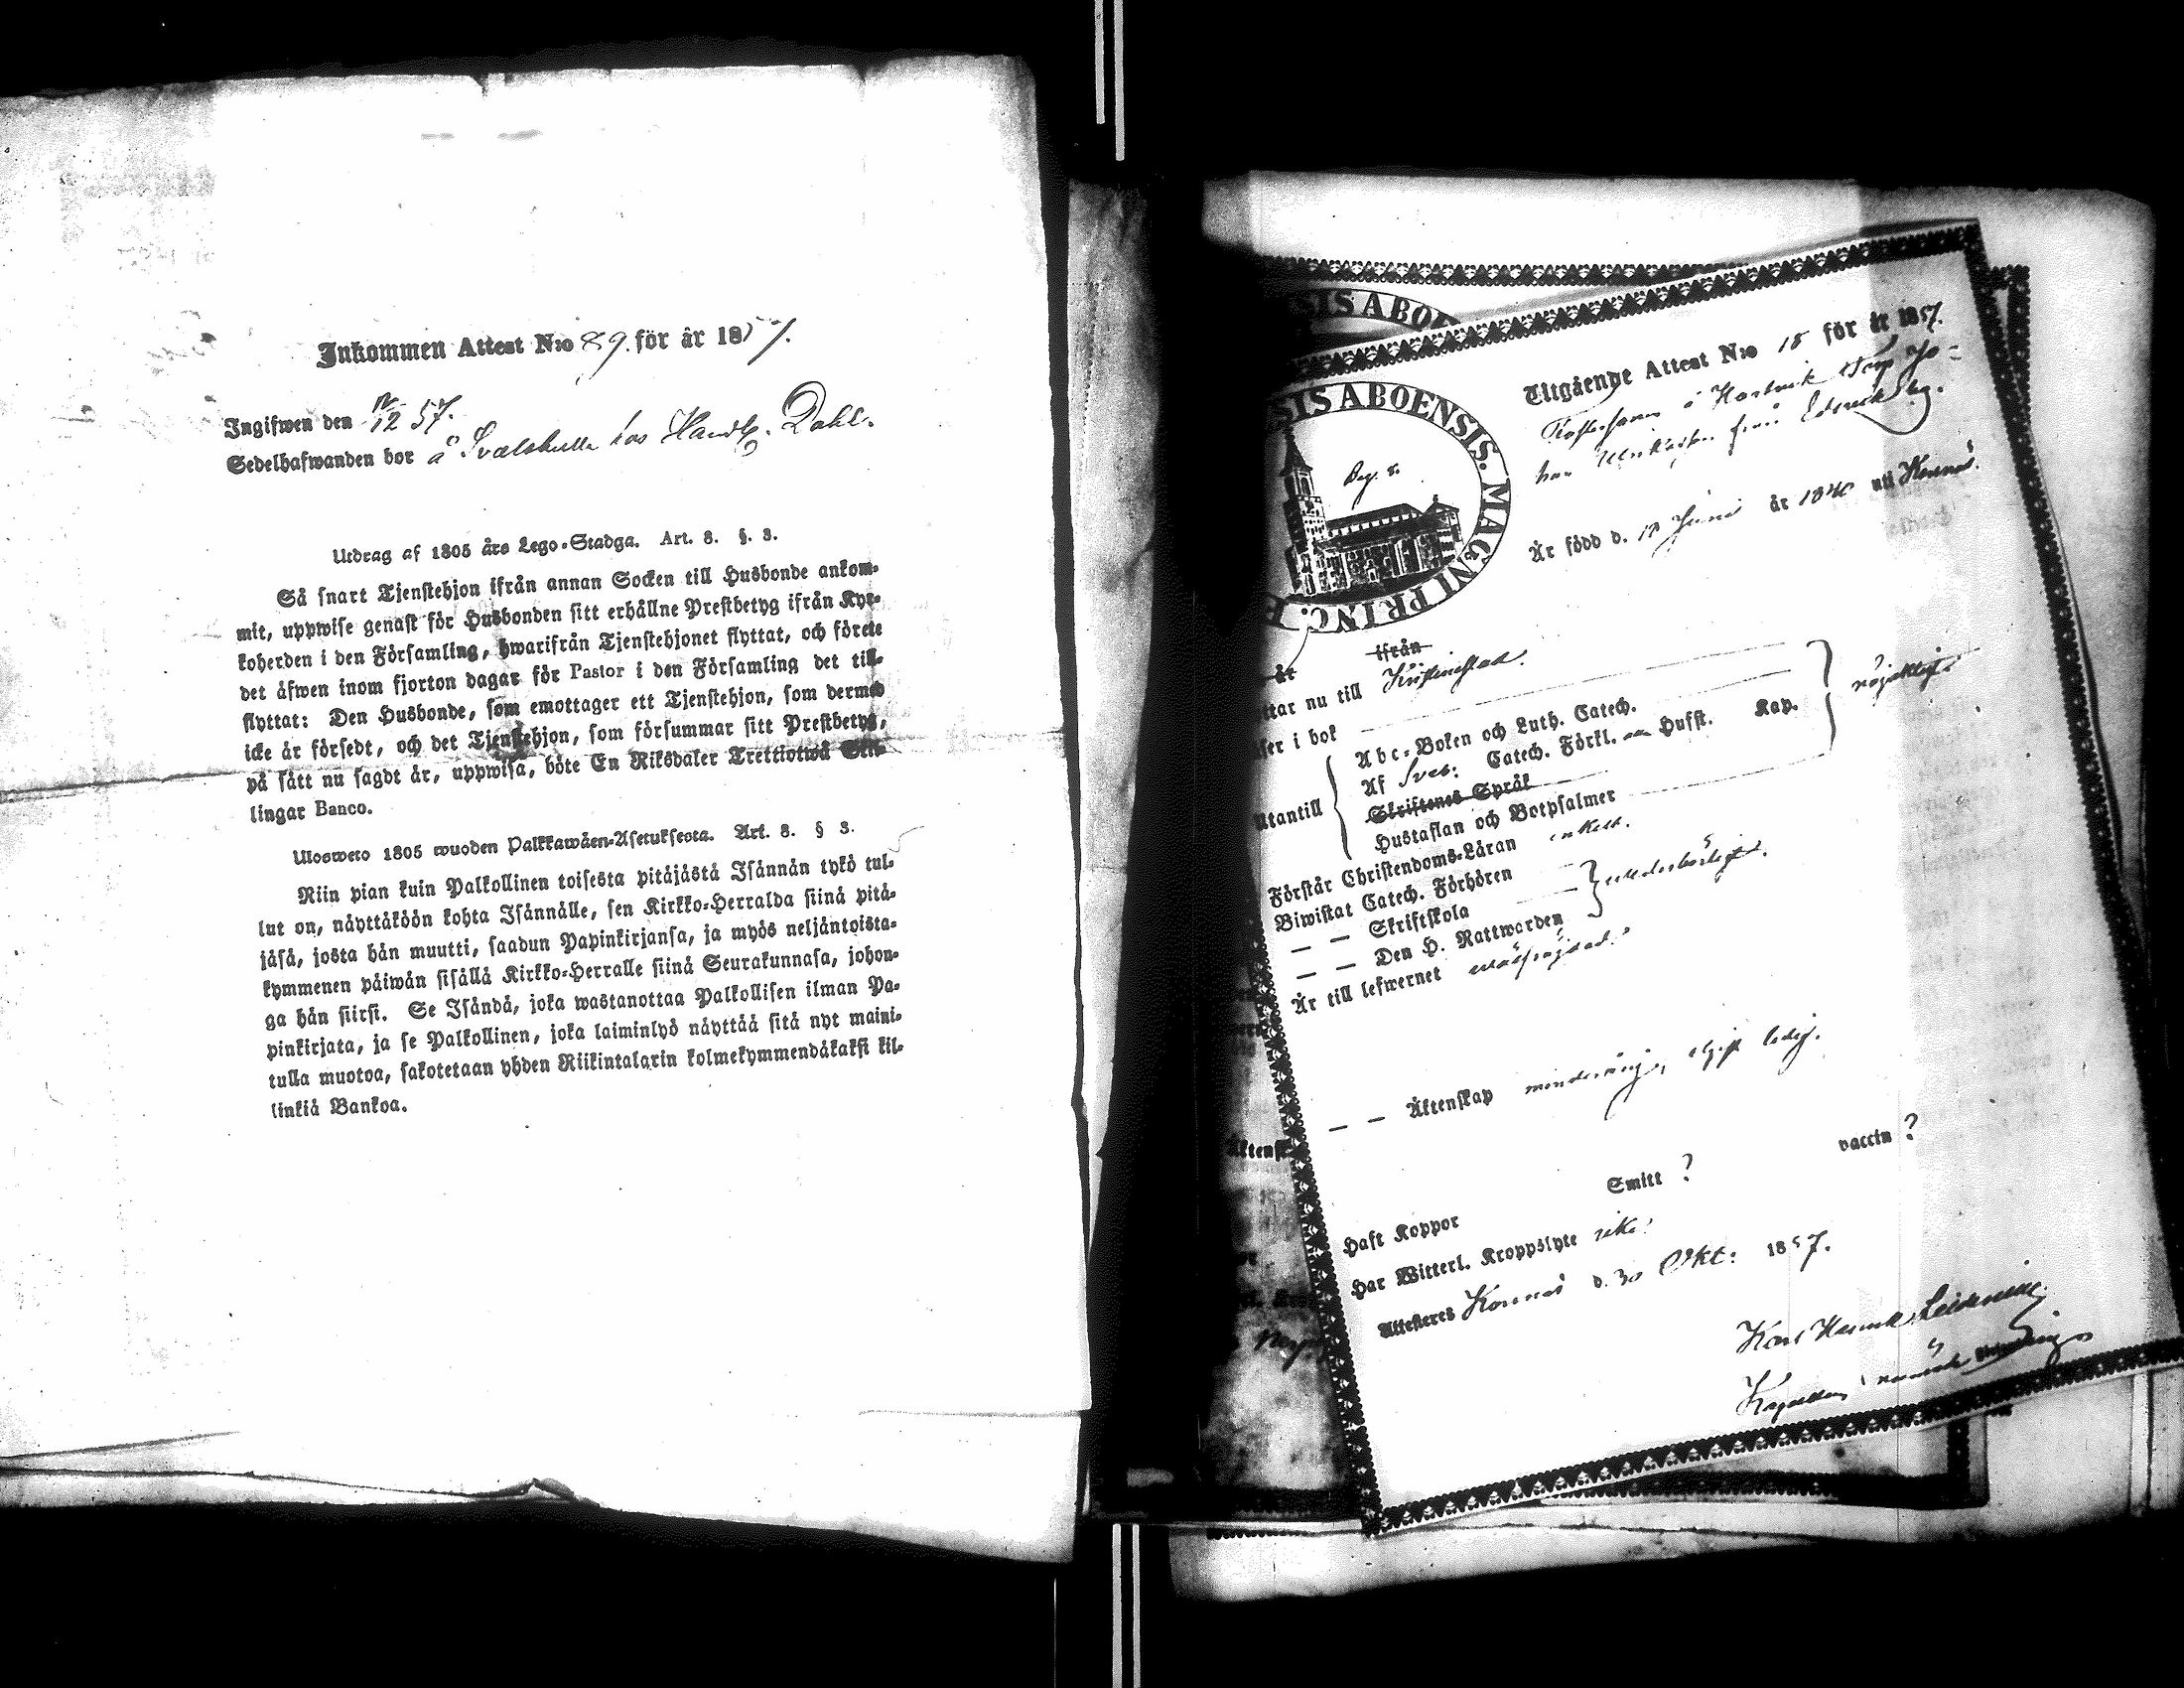 Inkommen Attest N:o 89. för år 1857.
Ingifwen den 12/12 57.
Sedelhafwanden bor å Svalskulla hos Handl. Dahl.
Utdrag af 1805 års Lego-Stadga. Art. 8. §. 3.
Så snart Tjenstehjon ifrån annan Socken till Husbonde ankom-
mit, uppwise genast för Husbonden sitt erhållne Prestbetyg ifrån Kyr-
koherden i den Församling, hwarifrån Tjenstehjonet flyttat, och förete
det äfwen inom fjorton dagar för Pastor i den Församling det till-
flyttat: Den Husbonde, som emottager ett Tjenstehjon, som dermed
icke är försedt, och det Tjenstehjon, som försummar sitt Prestbetyg,
på sätt nu sagdt är, uppwisa, böte En Riksdaler Trettiotwå Skil-
lingar Banco.
Ulosweto 1805 wuoden Palkkawäen-Asetuksesta. Art. 8. § 3.
Niin pian kuin Palkollinen toisesta pitäjästä Isännän tykö tul-
lut on, näyttäköön kohta Isännälle, sen Kirkko-Herralda siinä pitä-
jäsä, josta hän muutti, saadun Papinkirjansa, ja myös neljäntoista-
kymmenen päiwän sisällä Kirkko-Herralle siinä Seurakunnasa, johon-
ga hän siirsi. Se Isändä, joka wastanottaa Palkollisen ilman Pa-
pinkirjata, ja se Palkollinen, joka laiminlyö näyttää sitä nyt maini-
tulla muotoa, sakotetaan yhden Riikintalarin kolmekymmendäkaksi kil-
linkiä Bankoa.
SIS ABO
SIS ABOENSIS. MAGNI PRINC. F
Utgående Attest N:o 18 för år 1857.
Är född d. 18 Juni år 1840 uti Korsnäs.
ifrån
ttar nu till Kristinestad.
ser i bok
Utantill
Abc-Boken och Luth. Catech.
Af Sveb: Catech. Förkl. Hufst. Kap.
nöjaktigt.
Skriftenes Språk
Hustaflan och Botpsalmer
Förstår Christendoms-Läran enkelt.
Biwistat Catech. Förhören
— — Skriftskola
— — Den H. Nattwarden
wederbörligt.
Är till lefwernet wälfrejdad.
— — Äktenskap minderårig, ledig.
Haft Koppor Smitt ? vaccin ?
Har Witterl. Kroppslyte icke.
Attesteras Korsnäs d. 30 Okt: 1857.